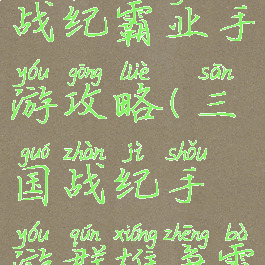 战纪霸业手
yóu gōng lüè sān
游攻略(三
guó zhàn jì shǒu
国战纪手
yóu qún xióng zhēng bà
游群雄争霸